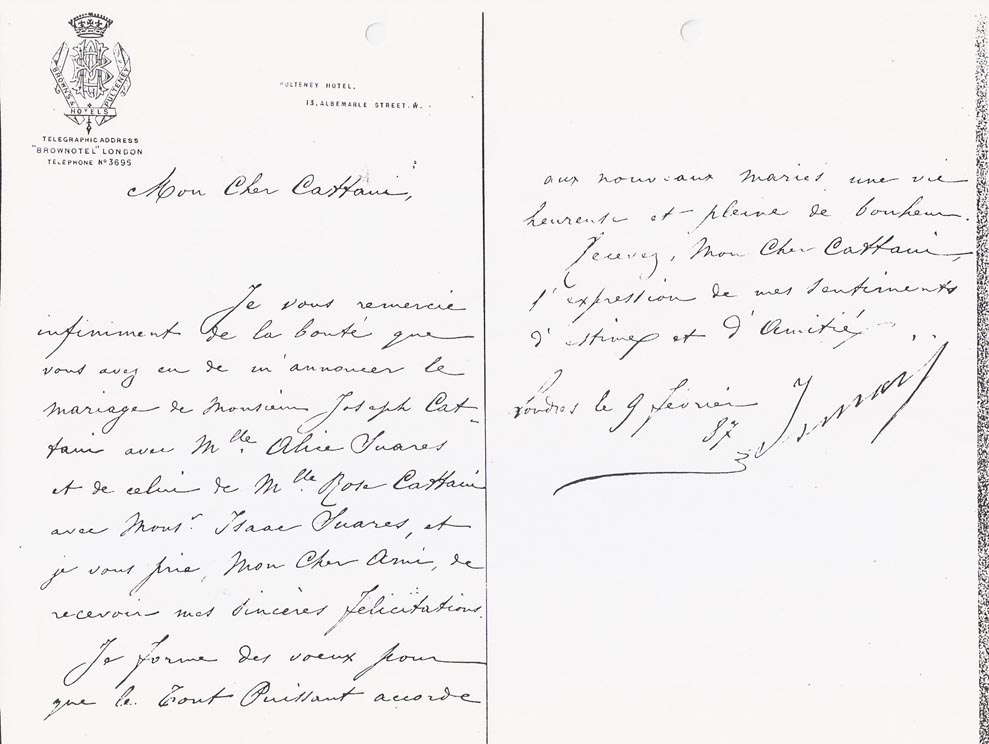 BROWNS & PULTENEY
HOTELS
TELEGRAPHIC ADDRESS
"BROWNOTEL" LONDON
TELEPHONE Nº 3695
PULTENEY HOTEL.
13, ALBEMARLE STREET. W.
Mon Cher Cattaui,
Je vous remercie
infiniment de la bonté que
vous avez eu de m'annoncer le
mariage de Monsieur Joseph Cat-
taui avec Mlle. Alice Suares
et de celui de Mlle. Rose Cattaui
avec Monsr. Isaac Suares, et
je vous prie, Mon Cher Ami, de
recevoir mes sincères félicitations.
Je forme des voeux pour
que le Tout Puissant accorde
aux nouveaux mariés une vie
heureuse et pleine de bonheur.
Recevez, Mon Cher Cattaui,
l'expression de mes sentiments
d'estime et d'Amitié
Londres le 9 février
87